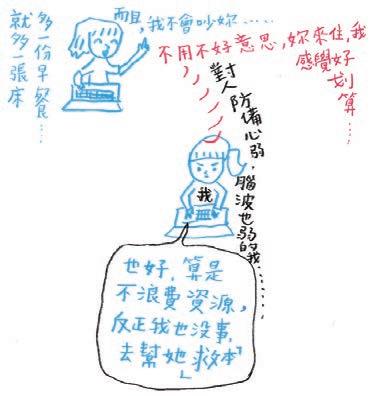 多一份早餐…
就多一張床
而且,我不會吵妳……
不用不好意思,妳來住,我
感覺好
划算…
對人防備心弱,腦波也弱的我…………
我
也好,算是
不浪費資源,
反正我也沒事,
去幫她「救本」